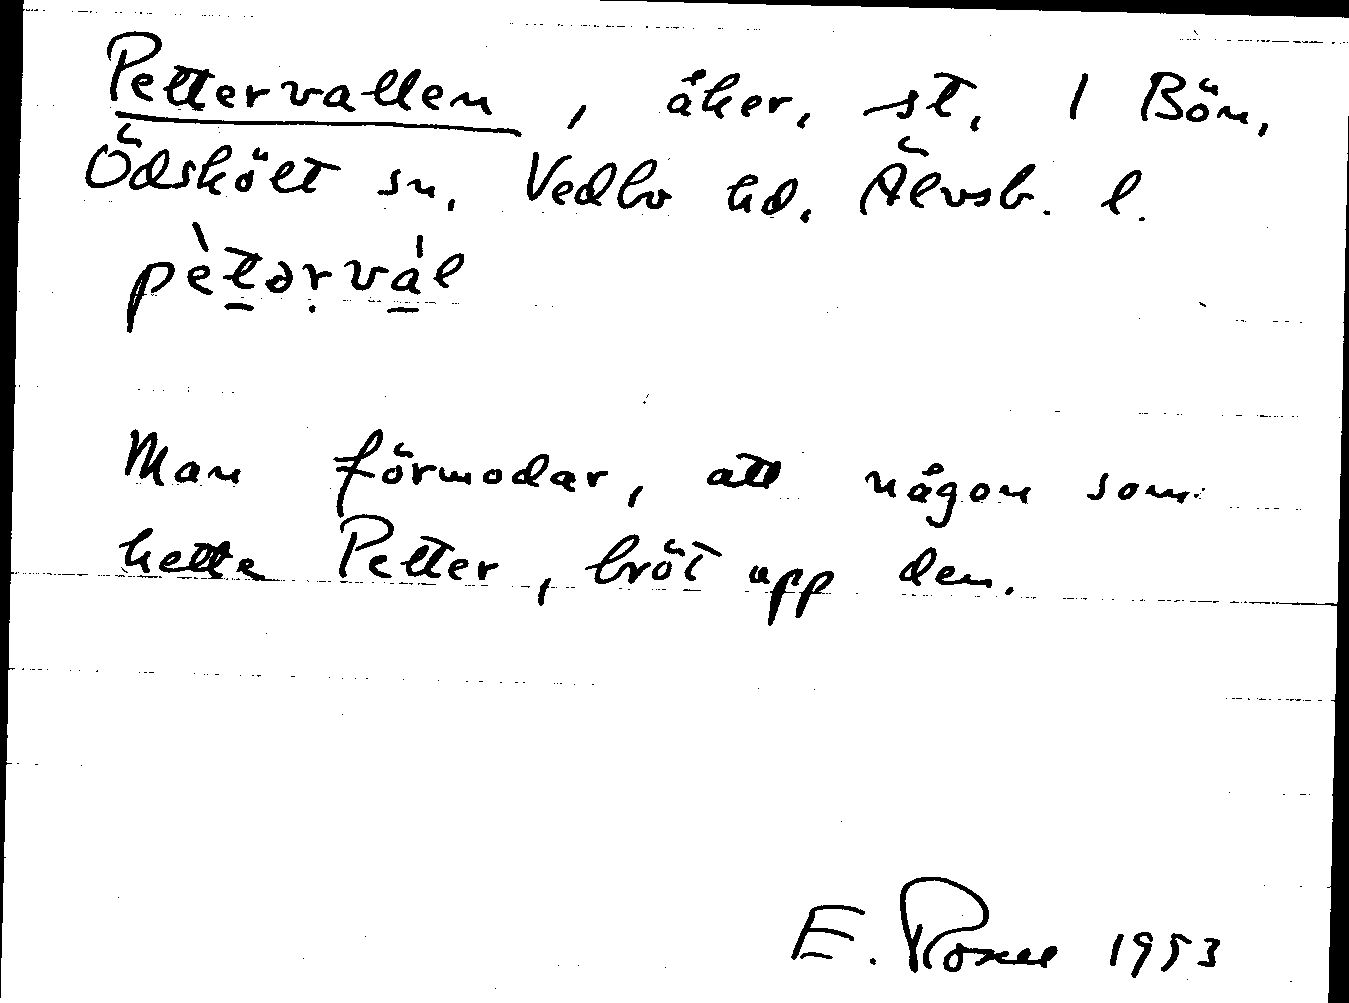 Pettervallen, åker, st. 1 Bön,
Ödskölt sn, Vedbo hd. Älvsb. l.
pètərvál
Man förmodar, att någon som
hette Petter, bröt upp den.
E. 1953